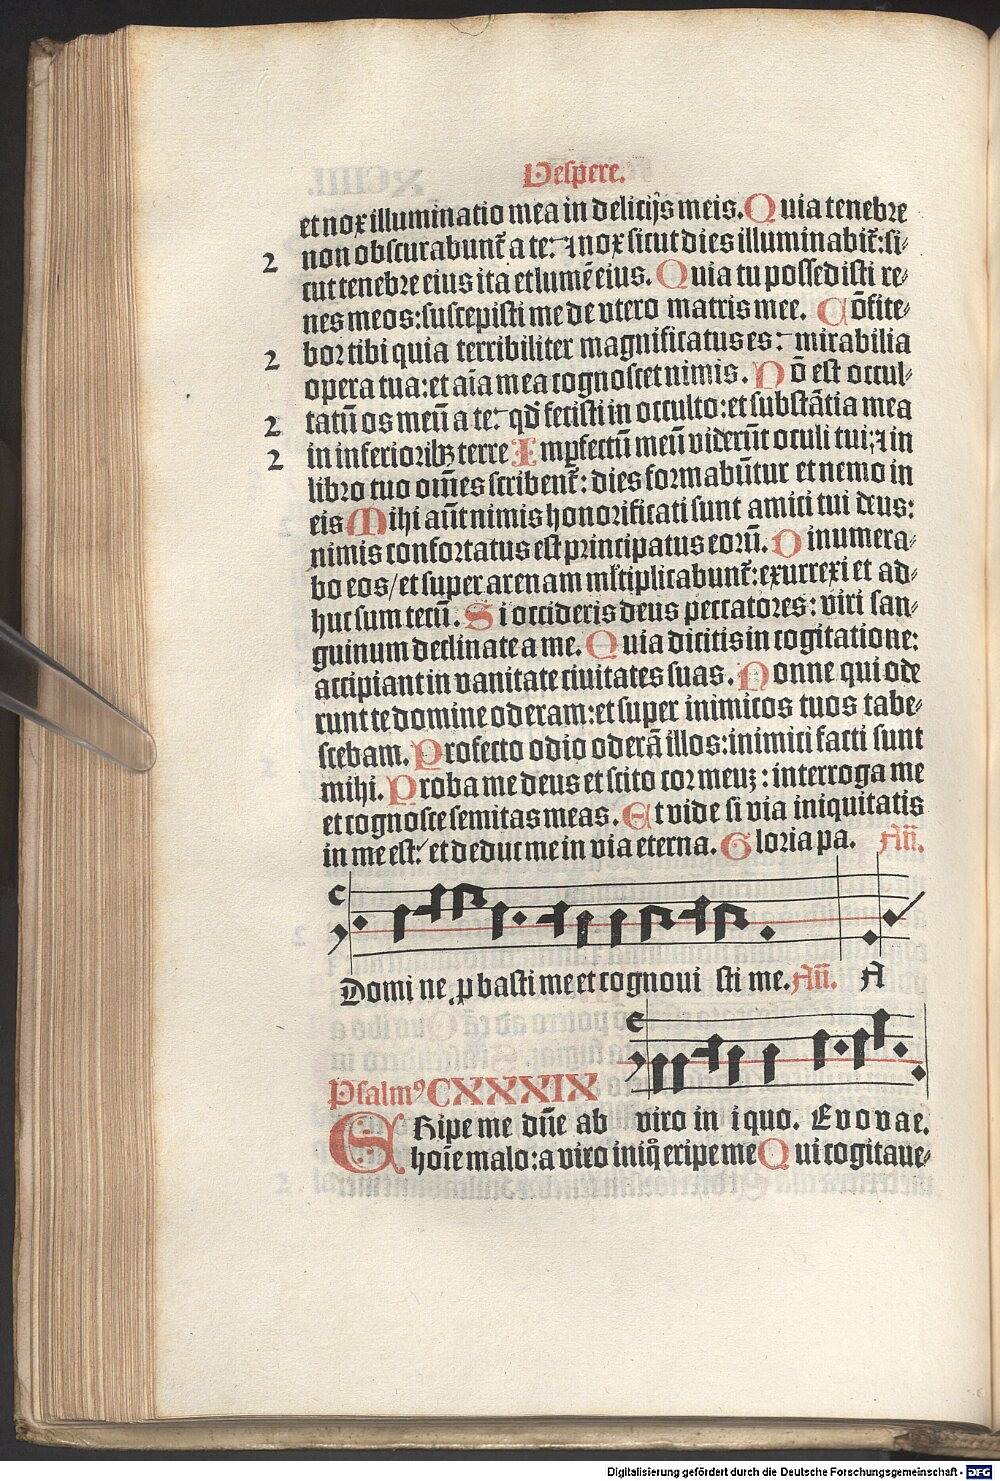 Vespere.
et nox illuminatio mea in delitijs meis. Quia tenebre
non obscurabunt̄ a te: ⁊ nox sicut dies illuminabit̄: si⸗
2
cut tenebre eius ita et lumē eius. Quia tu possedisti re⸗
nes meos: suscepisti me de vtero matris mee. Cōfite⸗
bor tibi quia terribiliter magnificatus es: mirabilia
2
opera tua: et aīa mea cognoscet nimis. Nō est occul⸗
tatū os meū a te: qđ fecisti in occulto: et substātia mea
2
in inferioribꝫ terre Imꝑfectū meū viderūt oculi tui: ⁊ in
2
libro tuo om̄es scribent̄: dies formabūtur et nemo in
eis Mihi aūt nimis honorificati sunt amici tui deus:
nimis confortatus est principatus eorū. Dinumera⸗
bo eos/ et super arenam ml̄tiplicabunt̄: exurrexi et ad⸗
huc sum tecū. Si occideris deus peccatores: viri san⸗
guinum declinate a me. Quia dicitis in cogitatione:
accipiant in vanitate ciuitates suas. Nonne qui ode
runt te domine oderam: et super inimicos tuos tabe⸗
scebam. Profecto odio oderā illos: inimici facti sunt
mihi. Proba me deus et scito cor meuꝫ: interroga me
et cognosce semitas meas. Et vide si via iniquitatis
in me est: et deduc me in via eterna. Gloria pa. Añ.
c
Domi ne ꝓbasti me et cognoui sti me. Añ. A
c
Psalmꝰ CXXXIX
viro in iquo. Evovae.
ERipe me dn̄e ab
hoīe malo: a viro iniq̊ eripe me Qui cogitaue⸗
Digitalisierung gefördert durch die Deutsche Forschungsgemeinschaft - DFG